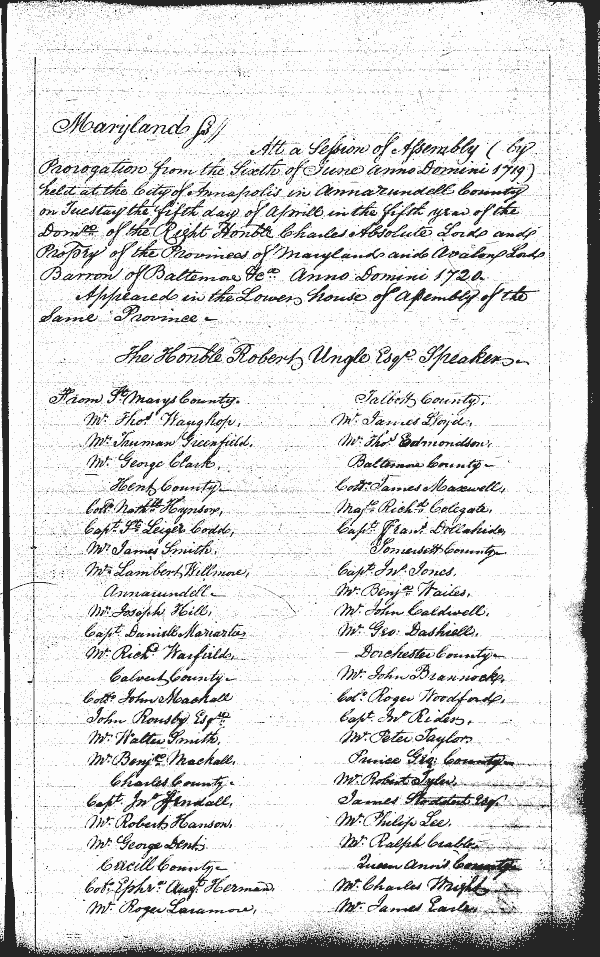 Maryland ss//
Att a Session of Assembly (by
Prorogation from the Sixth of June Anno Domini 1719)
held at the City of Annapolis in Annarundell County
on Tuesday the fifth day of Aprill in the fifth year of the
Domn̄ of the Right Honble Charles Absolute Lord and
Propry of the Provinces of Maryland and Avalon Lord
Barron of Baltemore &ca Anno Domini 1720.
Appeared in the Lower house of Assembly of the
Same Province -
The Honble Robert Ungle Esqr. Speaker -
From St. Marys County.
Mr. Thos. Waughop,
Mr. Truman Greenfield,
Mr. George Clark,
Kent County -
Coll. Nathll Hynson,
Capt. St. Leiger Codd,
Mr. James Smith,
Mr. Lambert Willmore,
Annarundell -
Mr. Joseph Hill,
Capt. Daniell Mariartee
Mr. Richd. Warfield,
Calvert County -
Coll. John Mackall
John Rousby Esqr.
Mr. Walter Smith,
Mr. Benja. Mackall,
Charles County -
Capt. Jno. Fendall,
Mr. Robert Hanson,
Mr. George Dent,
Cecill County -
Col. Ephrm. Augt. Herman
Mr. Roger Laramore,
Talbott County,
Mr. James Lloyd,
Mr. Thos. Edmondson,
Baltemore County -
Coll. James Maxwell,
Majr. Richd. Colegate,
Capt. Frans. Dollahide,
Somersett County -
Capt. Jno. Jones,
Mr. Benja. Wailes,
Mr. John Caldwell,
Mr. Geo. Dashiell,
Dorchester County -
Mr. John Brannock,
Col. Roger Woodford,
Capt. Jno. Rider,
Mr. Peter Taylor
Prince Geo. County -
Mr. Robert Tyler,
James Stoddert Esqr.
Mr. Philip Lee,
Mr. Ralph Crabb,
Queen Ann's County
Mr. Charles Wright
Mr. James Earle,